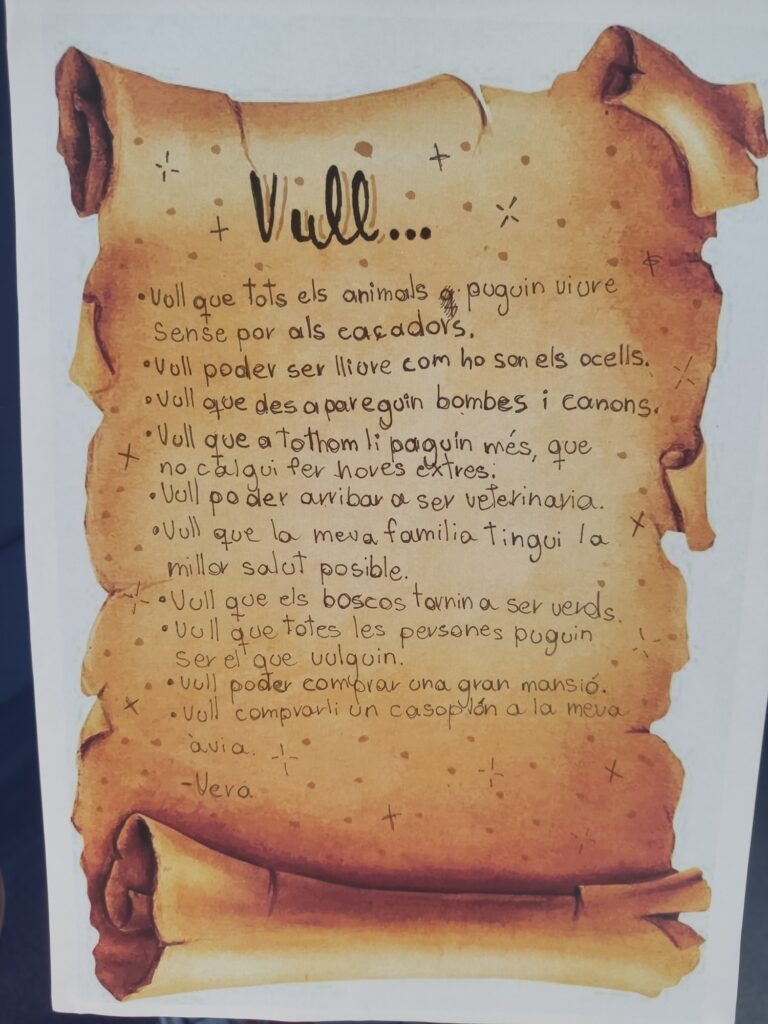 Vull...
• Vull que tots els animals puguin viure
sense por als caçadors.
• Vull poder ser lliure com ho son els ocells.
• Vull que desapareguin bombes i canons.
• Vull que a tothom li paguin més, que
no calgui fer hores extres.
• Vull poder arribar a ser veterinaria.
• Vull que la meva familia tingui la
millor salut posible.
• Vull que els boscos tornin a ser verds.
• Vull que totes les persones puguin
ser el que vulguin.
• Vull poder comprar una gran mansió.
• Vull comprarli un casoplón a la meva
àvia.
-Vera